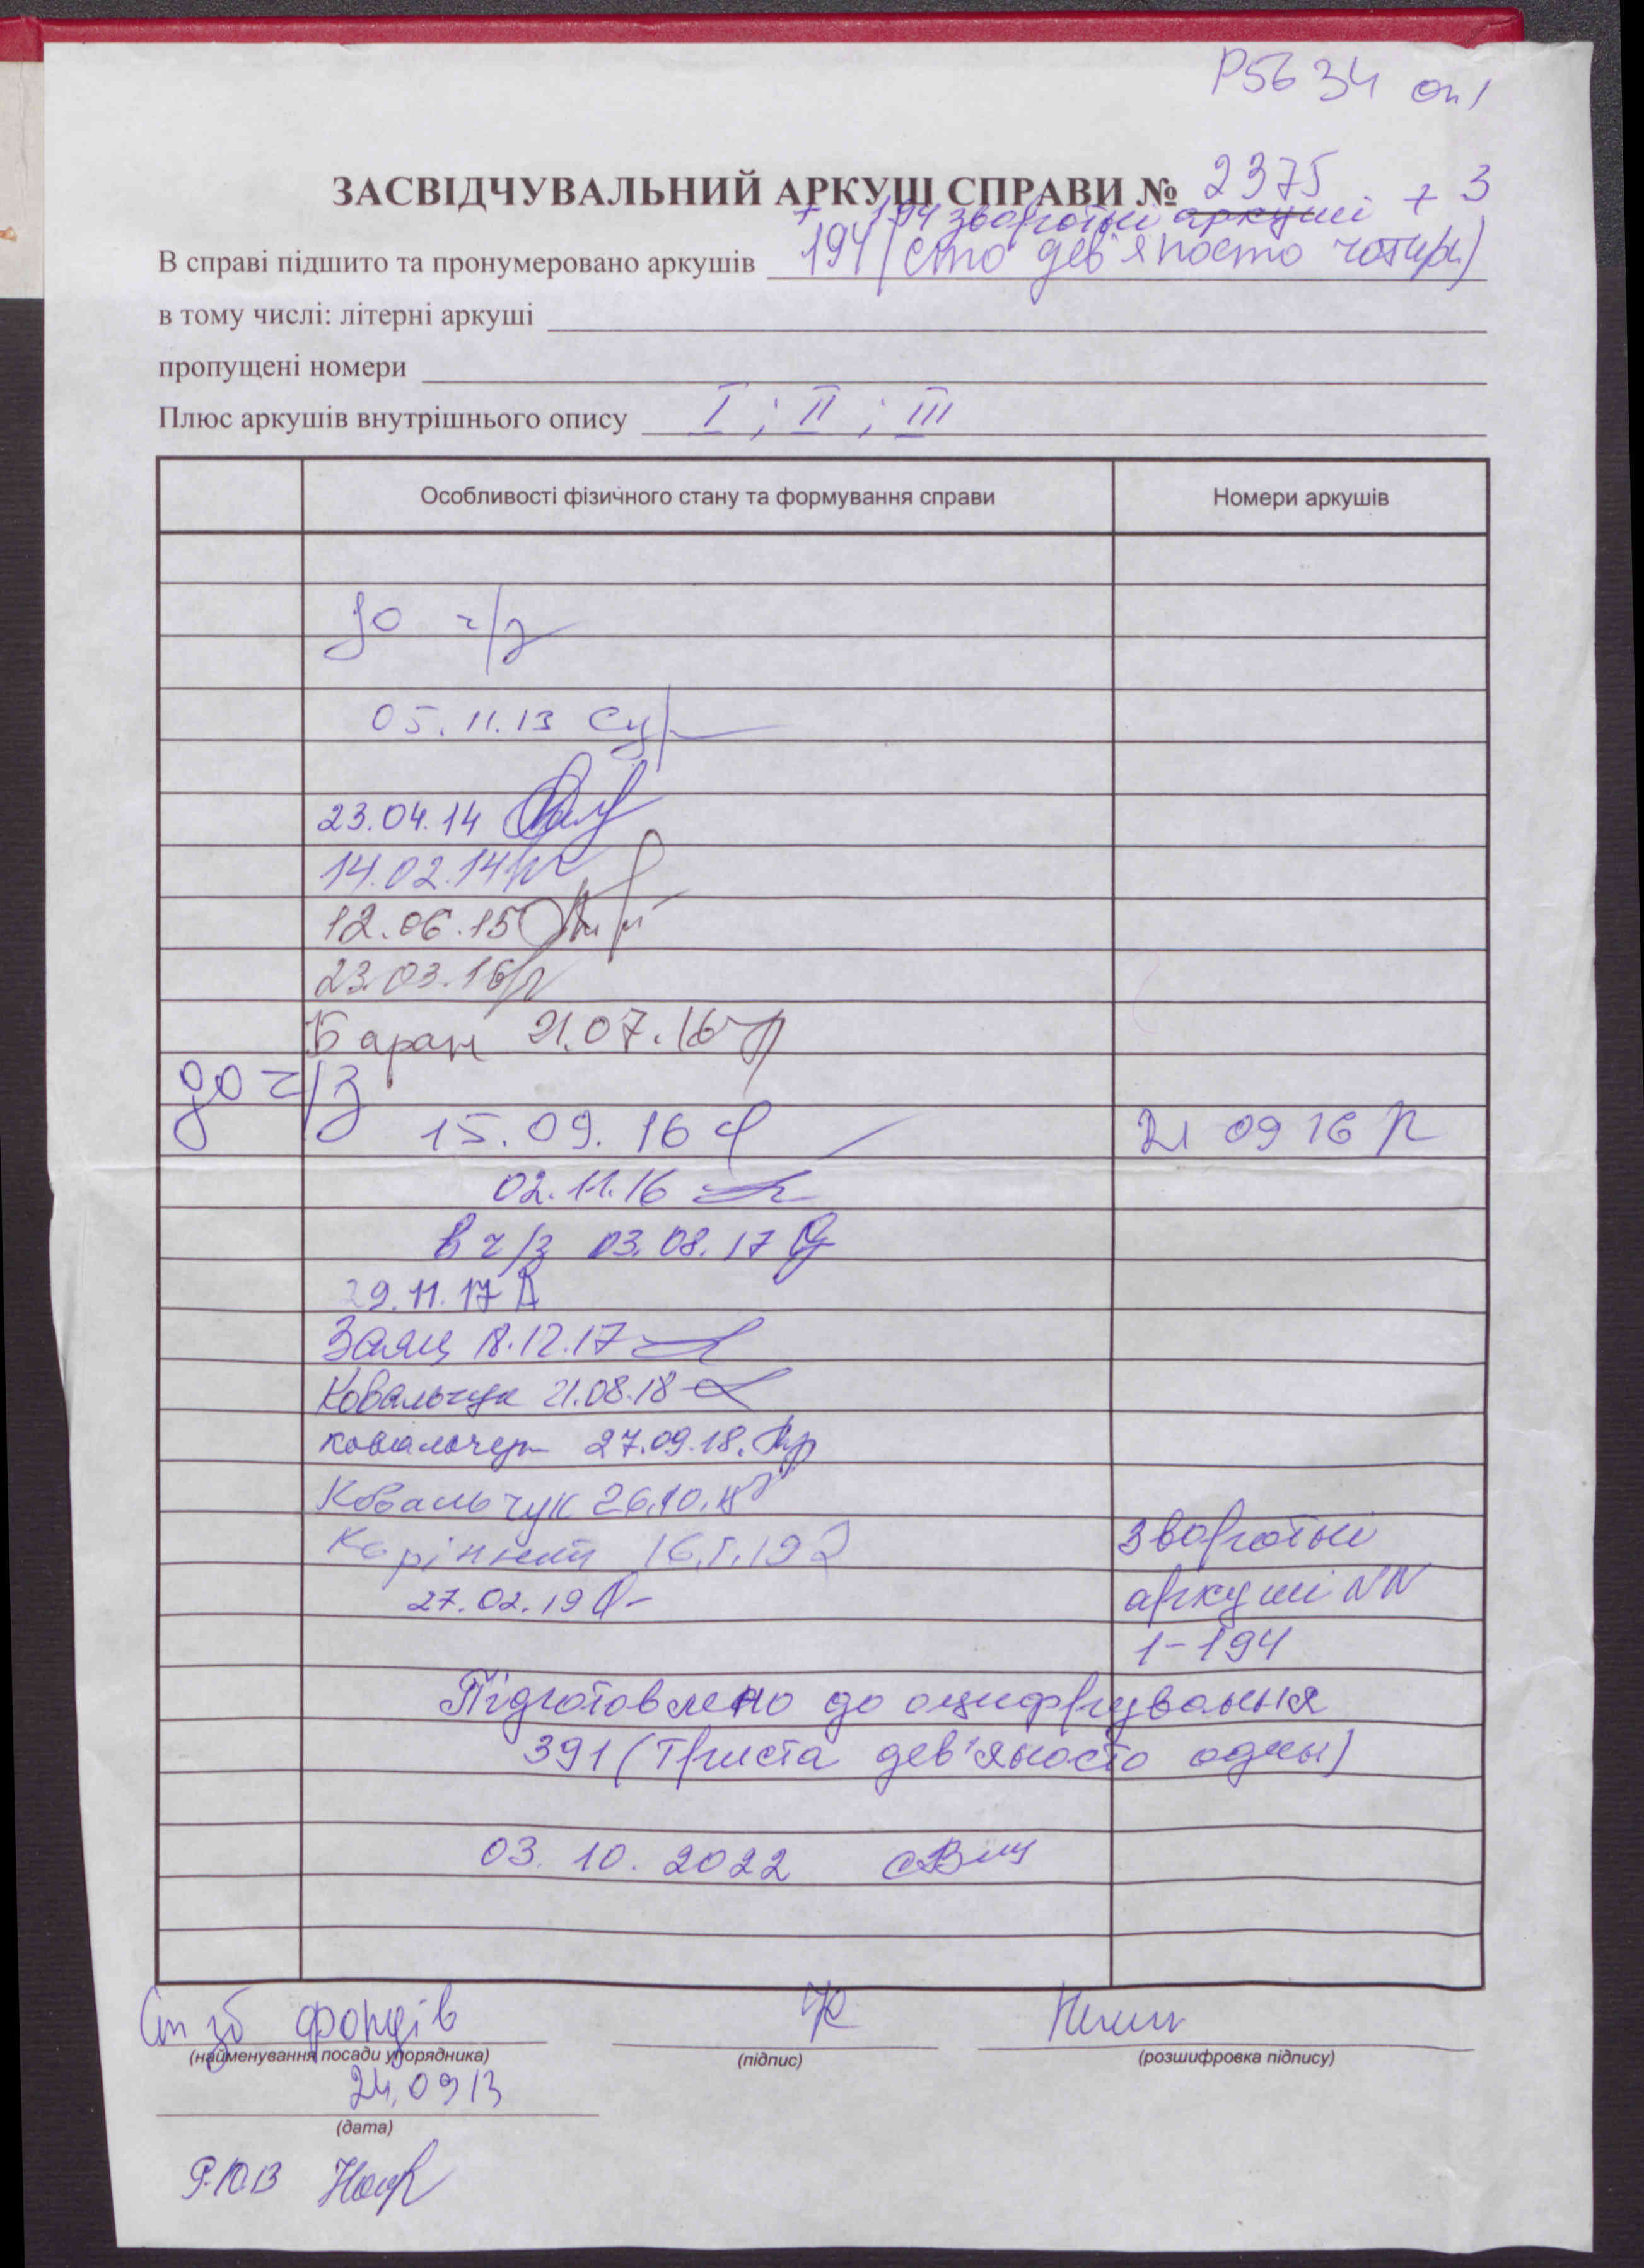 Р5634 оп 1
ЗАСВІДЧУВАЛЬНИЙ АРКУШ СПРАВИ № 2375
+ 194 зворотні аркуші + 3
В справі підшито та пронумеровано аркушів 194 (сто дев'яносто чотири)
в тому числі: літерні аркуші
пропущені номери
Плюс аркушів внутрішнього опису I ; II ; III
Особливості фізичного стану та формування справи Номери аркушів
до ч/з
05.11.13
23.04.14
14.02.14
12.06.15
23.03.16
Баран 21.07.16
до ч/з
15.09.16 21 09 16
02.11.16
в ч/з 03.08.17
29.11.17
Заяц 18.12.17
Ковальчук 21.08.18
Ковальчук 27.09.18.
Ковальчук 26.10.18
16.I.19 зворотні
27.02.19 аркуші NN
1-194
Підготовлено до оцифрування
391 (триста дев'яносто один)
03.10.2022
зб фондів
(найменування посади упорядника) (підпис) (розшифровка підпису)
24.09 13
(дата)
9.10.13